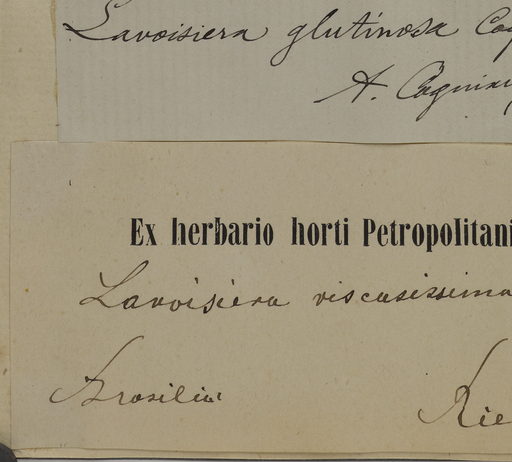 Lavoisiera glutinosa Cog
A. Cogniau
Ex herbario horti Petropolitani
Lavoisiera viscosissima
Brasilia
Rie